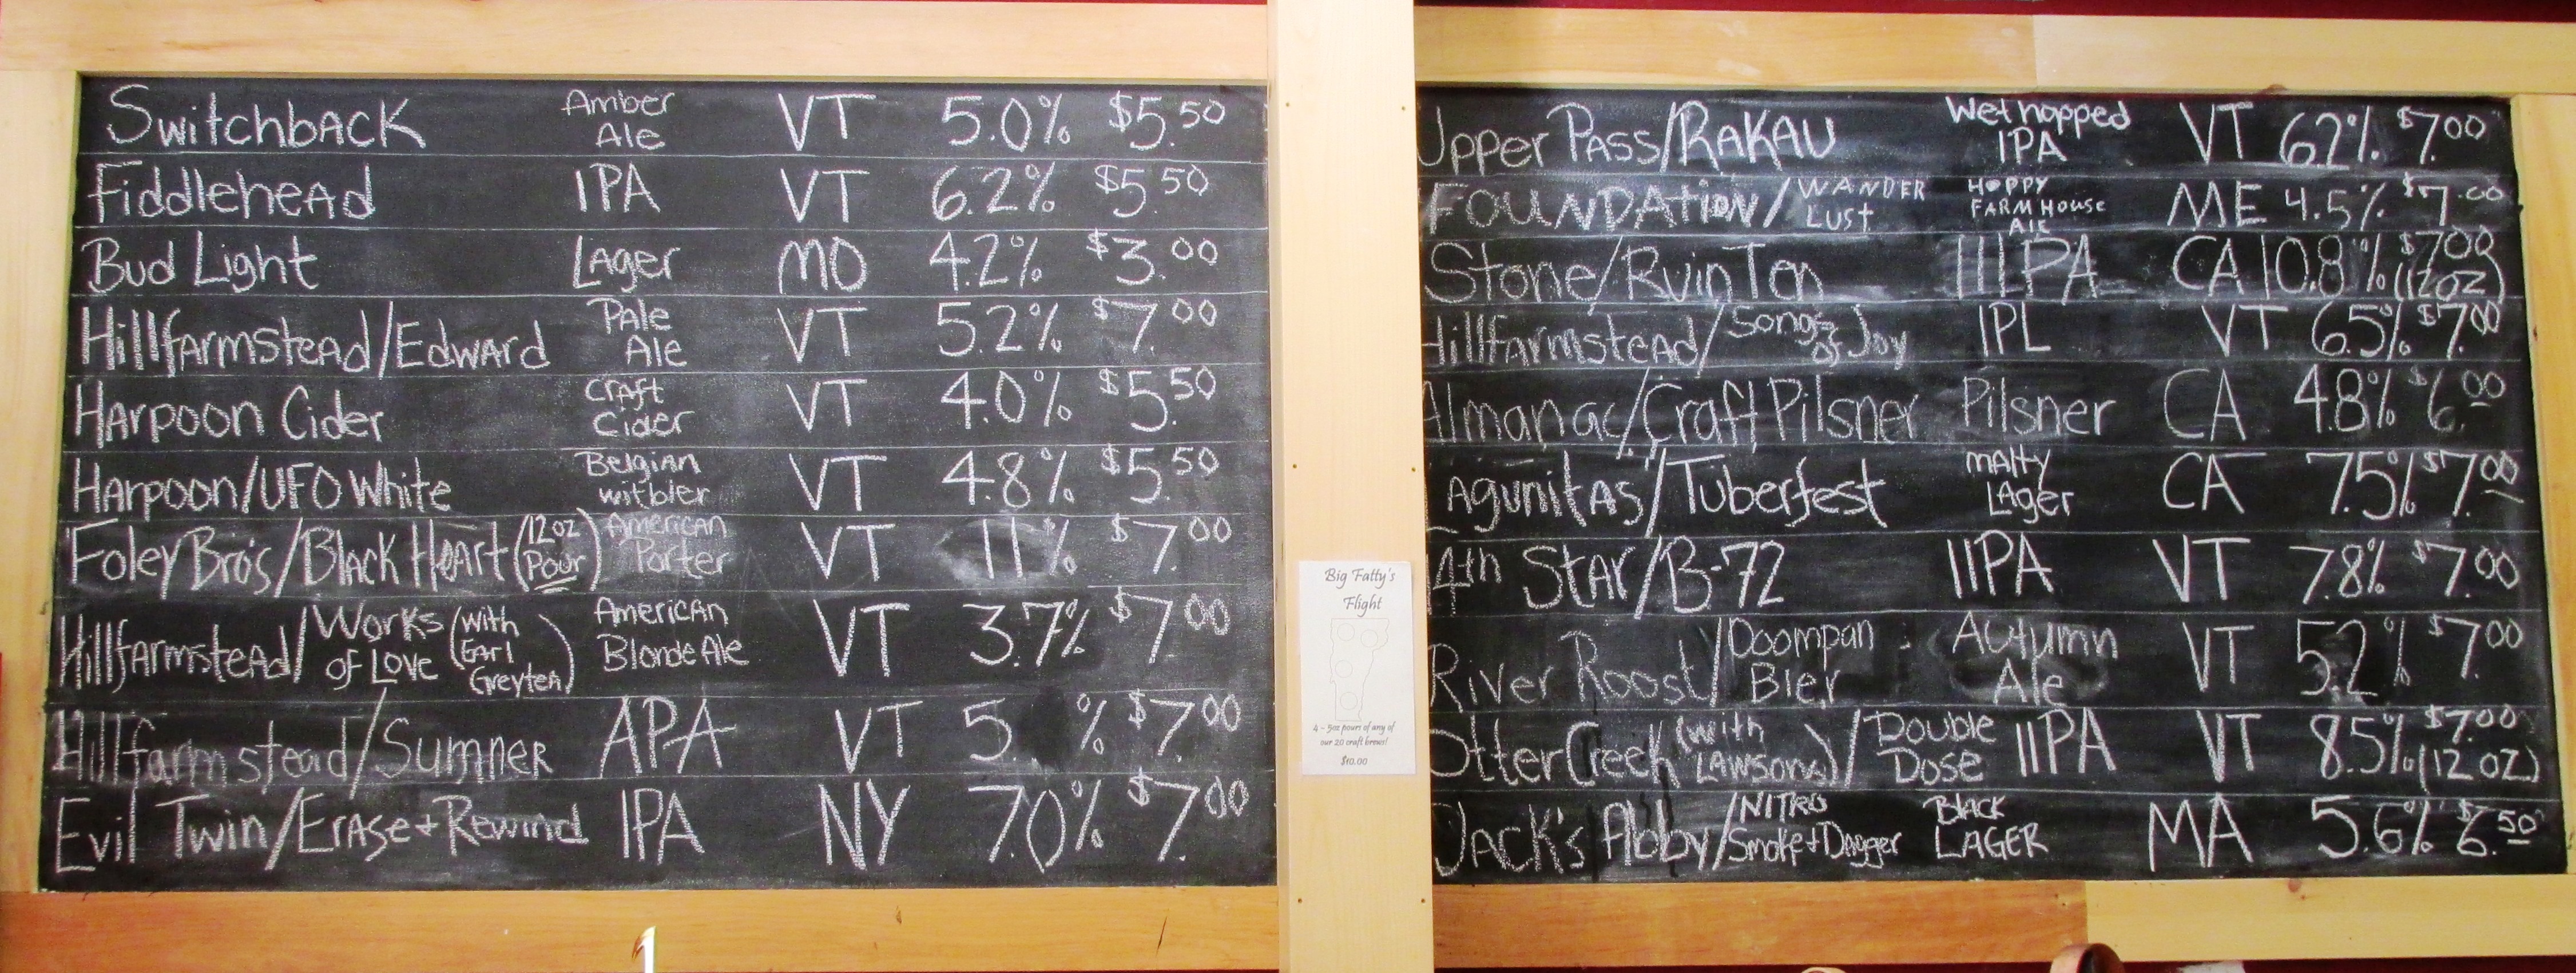 Switchback Amber Ale VT 5.0% $5.50
Fiddlehead IPA VT 6.2% $5.50
Bud Light Lager MO 4.2% $3.00
Hillfarmstead/Edward Pale Ale VT 5.2% $7.00
Harpoon Cider Craft Cider VT 4.0% $5.50
Harpoon/UFO White Belgian witbier VT 4.8% $5.50
Foley Bro's/Black Heart (12oz Pour) American Porter VT 11% $7.00
Hillfarmstead/Works of Love (with Earl Greyten) American Blonde Ale VT 3.7% $7.00
Hillfarmstead/Sumner APA VT 5. % $7.00
Evil Twin/Erase + Rewind IPA NY 7.0% $7.00
Big Fatty's
Flight
4 - 5oz pours of any of
our 20 craft brews!
$10.00
Upper Pass/RAKAU Wet hopped IPA VT 62% $7.00
Foundation/Wander Lust Hoppy Farm House Ale ME 4.5% $7.00
Stone/Ruin Ten IIIPA CA 10.8% $7.00 (12oz)
Hillfarmstead/Songs of Joy IPL VT 6.5% $7.00
Almanac/Craft Pilsner Pilsner CA 4.8% $6.00
Lagunitas/Tuberfest Malty Lager CA 7.5% $7.00
14th Star/B-72 IIPA VT 7.8% $7.00
River Roost/Doompan Bier Autumn Ale VT 5.2% $7.00
Otter Creek (with Lawsons)/Double Dose IIPA VT 8.5% $7.00 (12 oz)
Jack's Abby/Nitro Smoke + Dagger Black Lager MA 5.6% $6.50